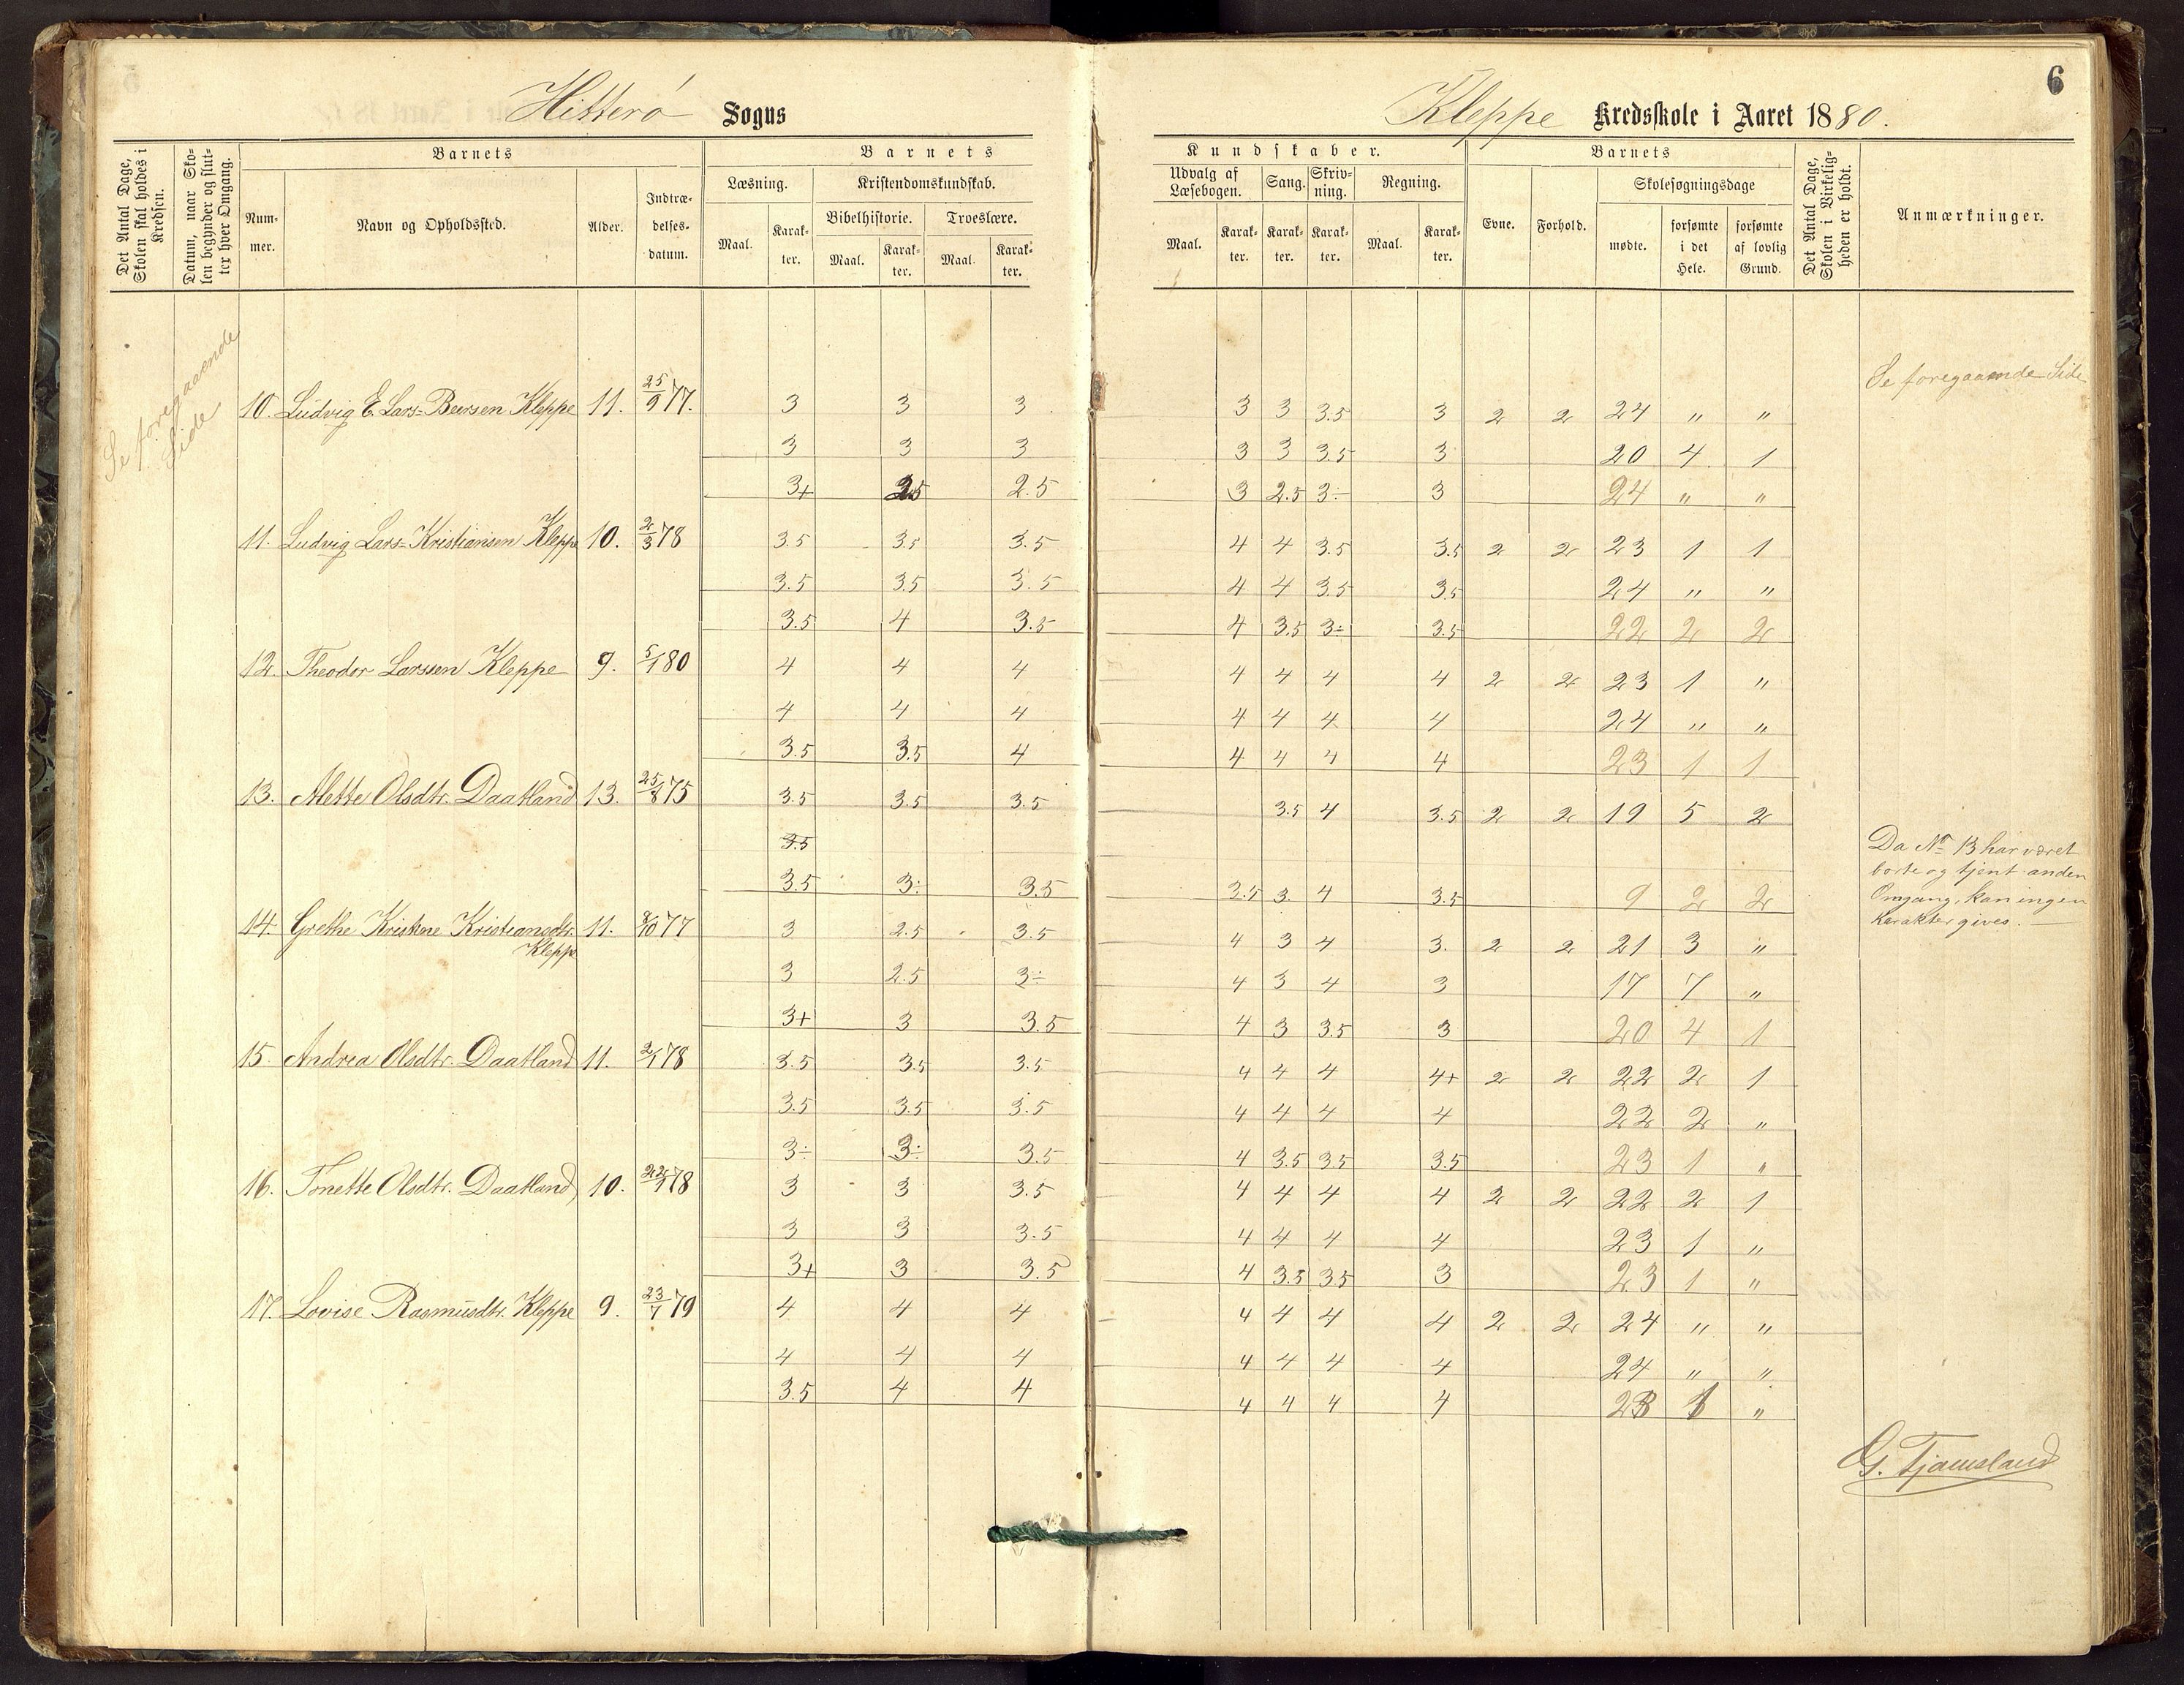 6
Hitterø Sogns Kleppe Kredsskole i Aaret 1880.
Det Antal Dage, Skolen skal holdes i Kredsen.
Datum, naar Skolen begynder og slutter hver Omgang.
Barnets
Nummer.
Navn og Opholdssted.
Alder.
Indtrædelsesdatum.
Barnets Kundskaber.
Læsning.
Maal.
Karakter.
Kristendomskundskab.
Bibelhistorie.
Maal.
Karakter.
Troeslære.
Maal.
Karakter.
Udvalg af Læsebogen.
Maal.
Karakter.
Sang.
Karakter.
Skrivning.
Karakter.
Regning.
Maal.
Karakter.
Barnets
Evne.
Forhold.
Skolesøgningsdage
mødte.
forsømte i det Hele.
forsømte af lovlig Grund.
Det Antal Dage, Skolen i Virkeligheden er holdt.
Anmærkninger.
Se foregaaende Side
Se foregaaende Side
10. Ludvig E. Lars-Beersen Kleppe 11. 25/9 77. 3 3 3 3 3 3.5 3 2 2 24 " "
3 3 3 3 3 3.5 3 20 4 1
3+ 2.5 3 2.5 3÷ 3 24 " "
11. Ludvig Lars-Kristiansen Kleppe 10. 2/3 78 3.5 3.5 3.5 4 4 3.5 3.5 2 2 23 1 1
3.5 3.5 3.5 4 4 3.5 3.5 24 " "
3.5 4 3.5 4 3.5 3÷ 3.5 22 2 2
12. Theodor Larssen Kleppe 9. 5/1 80 4 4 4 4 4 4 4 2 2 23 1 "
4 4 4 4 4 4 4 24 " "
3.5 3.5 4 4 4 4 4 23 1 1
13. Alette Olsdtr. Daatland 13. 25/8 75 3.5 3.5 3.5 3.5 4 3.5 2 2 19 5 2
3.5
3.5 3÷ 3.5 3.5 3. 4 3.5 9 2 2
Da No 13 har været
borte og tjent anden
Omgang, kan ingen
Karakter gives. —
14. Grethe Kristine Kristiansdtr. 11. 8/10 77 3 2.5 3.5 4 3 4 3. 2 2 21 3 "
Kleppe
3 2.5 3÷ 4 3 4 3 17 7 "
3+ 3 3.5 4 3 3.5 3 20 4 1
15. Andrea Olsdtr. Daatland 11. 2/1 78 3.5 3.5 3.5 4 4 4 4+ 2 2 22 2 1
3.5 3.5 3.5 4 4 4 4 22 2 "
3÷ 3÷ 3.5 4 3.5 3.5 3.5 23 1 "
16. Tonette Olsdtr. Daatland 10. 22/1 78 3 3 3.5 4 4 4 4 2 2 22 2 1
3 3 3.5 4 4 4 4 23 1 "
3+ 3 3.5 4 3.5 3.5 3 23 1 "
17. Lovise Rasmusdtr. Kleppe 9. 23/7 79 4 4 4 4 4 4 4 2 2 24 " "
4 4 4 4 4 4 4 24 " "
3.5 4 4 4 4 4 4 23 1 "
G. Tjamsland